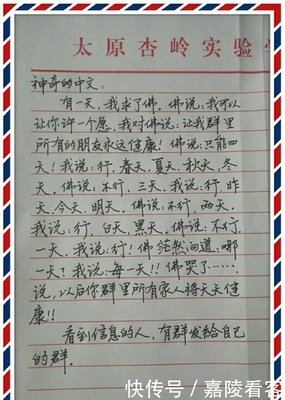 太原杏岭实验
神奇的中文:
有一天,我求了佛。佛说:我可以
让你许一个愿。我对佛说:让我群里
所有的朋友永远健康!佛说:只能四
天!我说:行,春天,夏天,秋天,冬
天。佛说:不行,三天。我说:行,昨
天,今天,明天。佛说:不行,两天,
我说:行,白天,黑天。佛说:不行,
一天,我说:行!佛茫然问道:哪
一天?我说:每一天!!佛哭了……
说,以后你群里所有家人将天天健
康!!
看到信息的人,有群发给自己
的群.
快传号/嘉陵看客